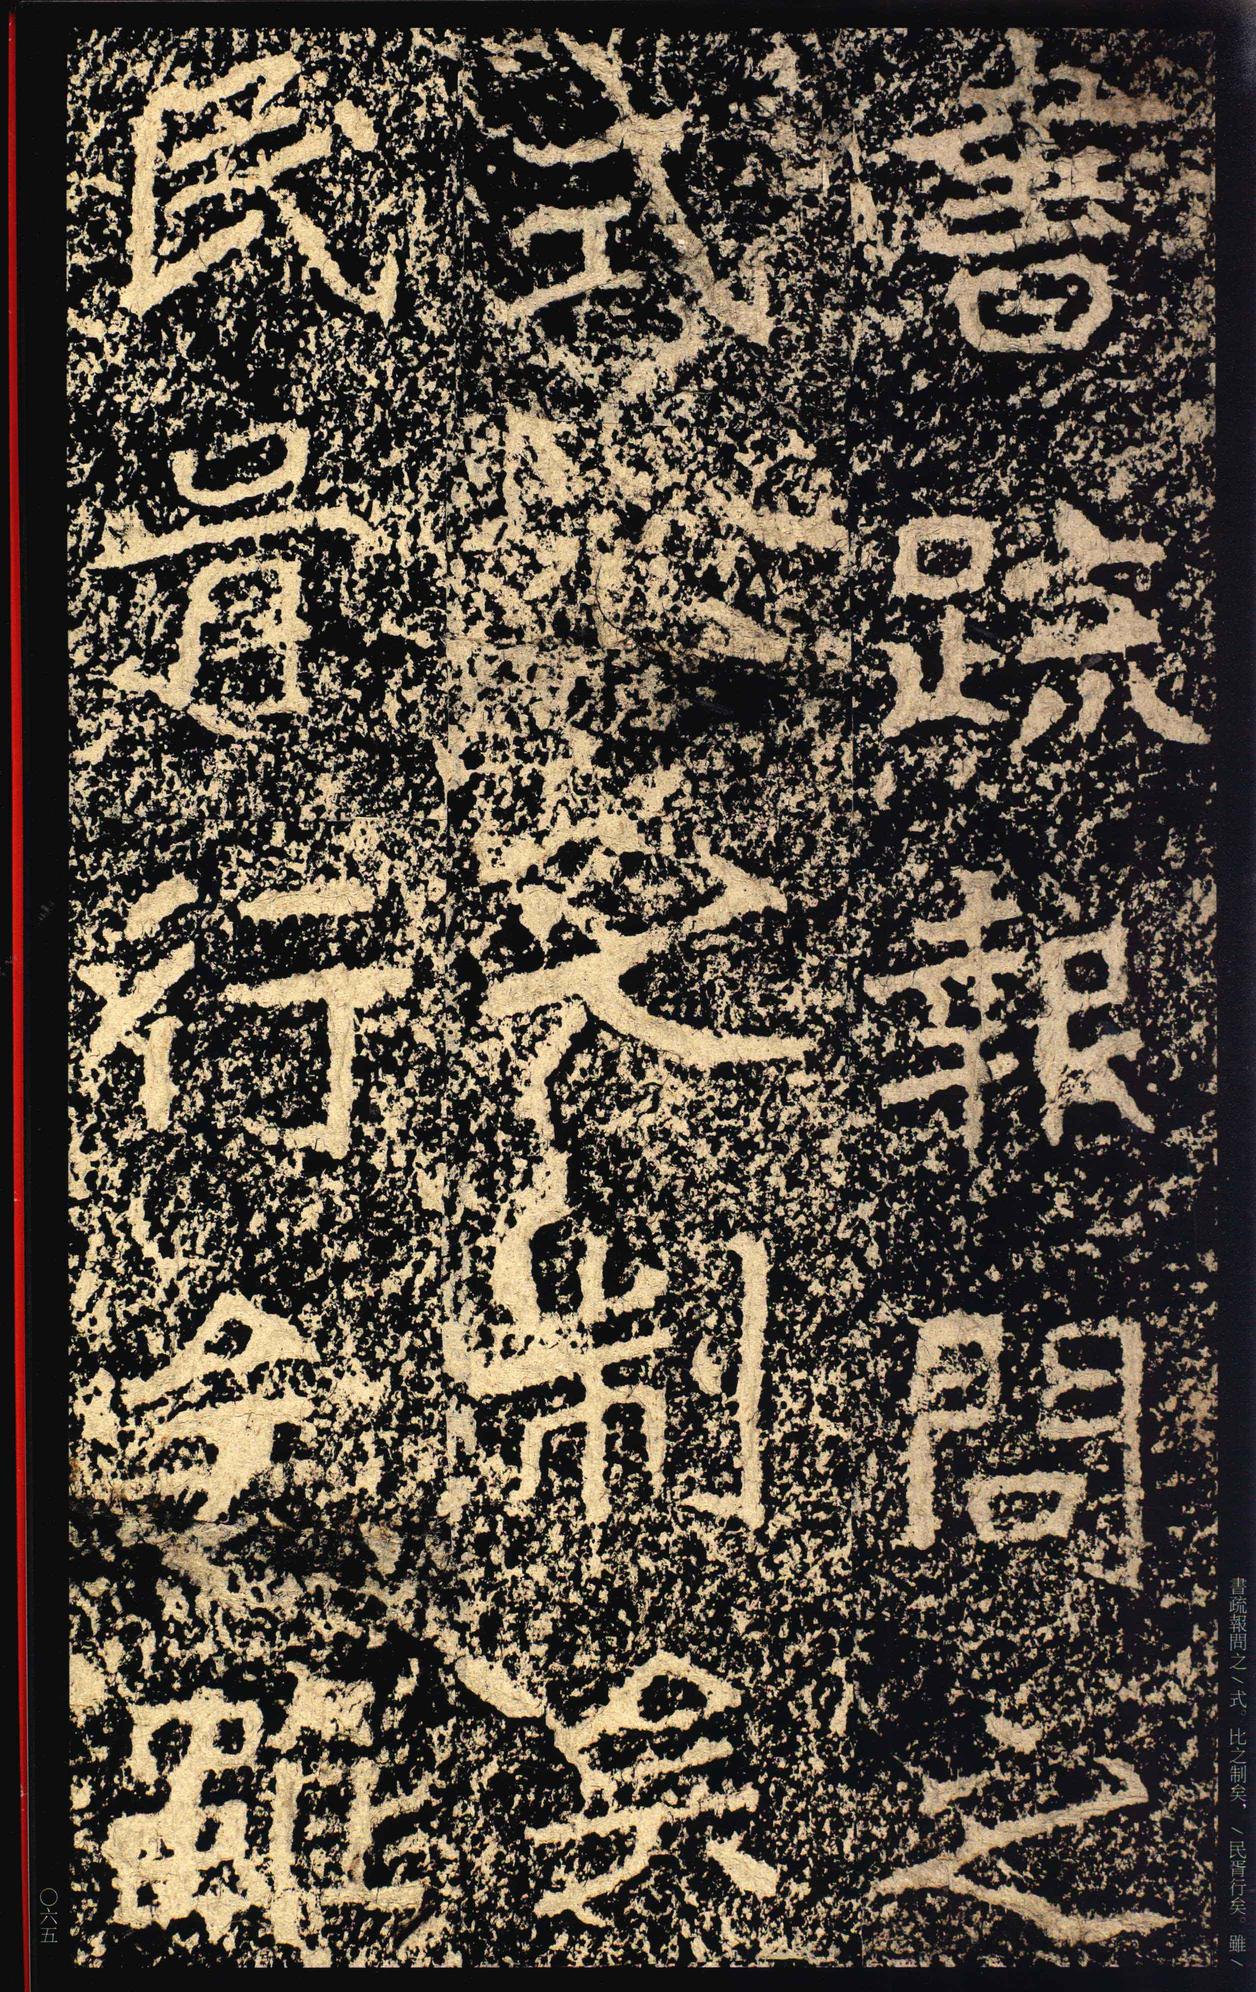 書疏報問之
式比之制矣
民胥行矣雖
書疏報問之／式。比之制矣，／民胥行矣。雖／
〇六五